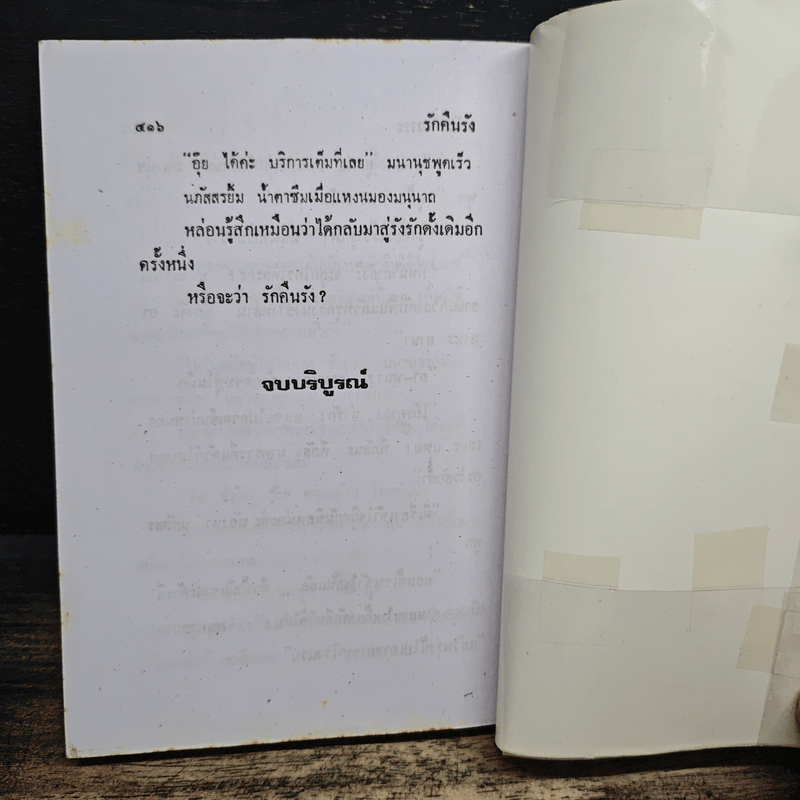 ๔๑๖ รักคืนรัง
"อุ๊ย ได้ค่ะ บริการเต็มที่เลย" มนานุชพูดเร็ว
นภัสสรยิ้ม น้ำตาซึมเมื่อแหงนมองมนุนาถ
หล่อนรู้สึกเหมือนว่าได้กลับมาสู่รังรักดั้งเดิมอีก
ครั้งหนึ่ง
หรือจะว่า รักคืนรัง?
จบบริบูรณ์